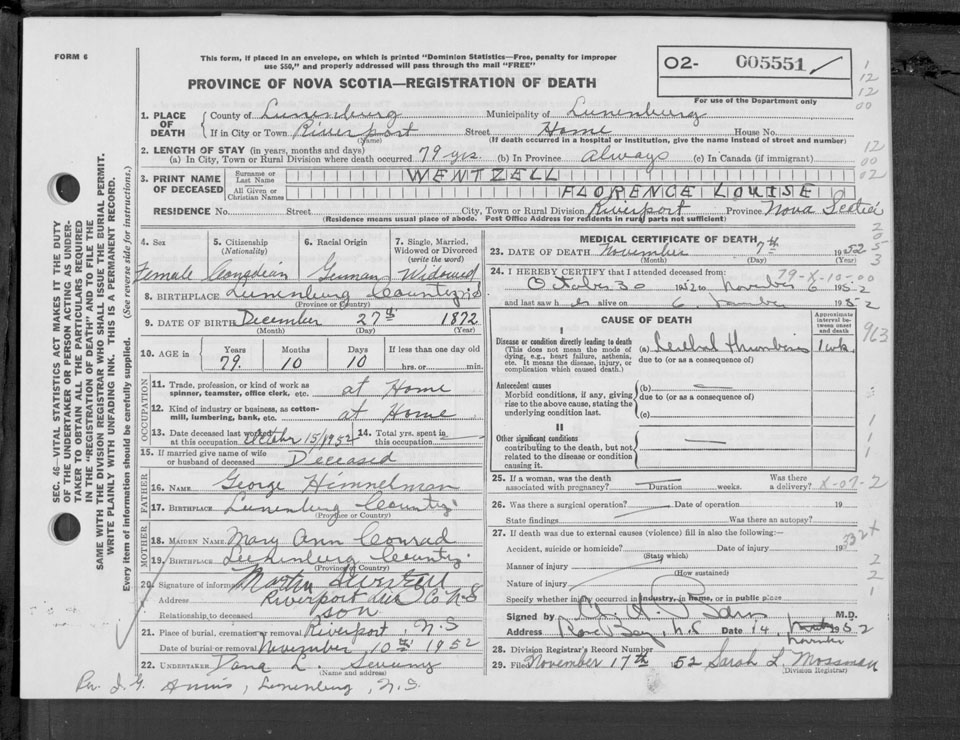 FORM 6
This form, if placed in an envelope, on which is printed "Dominion Statistics—Free, penalty for improper
use $50," and properly addressed will pass through the mail "FREE"
PROVINCE OF NOVA SCOTIA—REGISTRATION OF DEATH
02- 005551
For use of the Department only
1. PLACE OF DEATH
County of Lunenburg Municipality of Lunenburg
If in City or Town Riverport Street Home House No.
(Name) (If death occurred in a hospital or institution, give the name instead of street and number)
2. LENGTH OF STAY (in years, months and days)
(a) In City, Town or Rural Division where death occurred 79 yrs. (b) In Province always (c) In Canada (if immigrant)
3. PRINT NAME OF DECEASED
Surname or Last Name WENTZELL
All Given or Christian Names FLORENCE LOUISE
RESIDENCE No. Street City, Town or Rural Division Riverport Province Nova Scotia
(Residence means usual place of abode. Post Office Address for residents in rural parts not sufficient)
4. Sex Female
5. Citizenship (Nationality) Canadian
6. Racial Origin German
7. Single, Married, Widowed or Divorced (write the word) Widowed
8. BIRTHPLACE Lunenburg County N.S
(Province or Country)
9. DATE OF BIRTH December 27th 1872
(Month) (Day) (Year)
10. AGE in Years 79 Months 10 Days 10 If less than one day old hrs. or min.
OCCUPATION
11. Trade, profession, or kind of work as spinner, teamster, office clerk, etc. at Home
12. Kind of industry or business, as cotton-mill, lumbering, bank, etc. at Home
13. Date deceased last worked at this occupation October 15/1952 14. Total yrs. spent in this occupation
15. If married give name of wife or husband of deceased Deceased
FATHER
16. NAME George Himmelman
17. BIRTHPLACE Lunenburg County
(Province or Country)
MOTHER
18. MAIDEN NAME Mary Ann Conrad
19. BIRTHPLACE Lunenburg County
(Province or Country)
20. Signature of informant
Address Riverport Lun Co N-S
Relationship to deceased son
21. Place of burial, cremation or removal Riverport, N.S
Date of burial or removal November 10th 1952
22. UNDERTAKER Dana L. Sweeny
(Name and address)
Lunenburg, N.S.
MEDICAL CERTIFICATE OF DEATH
23. DATE OF DEATH November 7th 1952
(Month) (Day) (Year)
24. I HEREBY CERTIFY that I attended deceased from:
October 30 1952 to November 6 1952
and last saw her alive on 6 November 1952
79-X-10-00
CAUSE OF DEATH
Approximate interval between onset and death
I
Disease or condition directly leading to death
(This does not mean the mode of dying, e.g., heart failure, asthenia, etc. It means the disease, injury, or complication which caused death.)
(a) Cerebral thrombosis 1 wk
due to (or as a consequence of)
Antecedent causes
Morbid conditions, if any, giving rise to the above cause, stating the underlying condition last.
(b)
due to (or as a consequence of)
(c)
II
Other significant conditions
contributing to the death, but not related to the disease or condition causing it.
25. If a woman, was the death associated with pregnancy? Duration weeks. Was there a delivery? X-07-2
26. Was there a surgical operation? Date of operation 19
State findings Was there an autopsy?
27. If death was due to external causes (violence) fill in also the following:—
Accident, suicide or homicide? Date of injury 19
(State which)
Manner of injury
(How sustained)
Nature of injury
Specify whether injury occurred in industry, in home, or in public place
Signed by M.D.
Address Rose Bay, N.S Date 14 November 1952
28. Division Registrar's Record Number
29. Filed November 17th 52 Sarah L. Mossman
(Division Registrar)
SEC. 46—VITAL STATISTICS ACT MAKES IT THE DUTY
OF THE UNDERTAKER OR PERSON ACTING AS UNDER-
TAKER TO OBTAIN ALL THE PARTICULARS REQUIRED
IN THE "REGISTRATION OF DEATH" AND TO FILE THE
SAME WITH THE DIVISION REGISTRAR WHO SHALL ISSUE THE BURIAL PERMIT.
WRITE PLAINLY WITH UNFADING INK. THIS IS A PERMANENT RECORD.
Every item of information should be carefully supplied. (See reverse side for instructions.)
1
12
12
00
12
00
02
2
0
5
3
963
1
1
1
332+
2
2
1